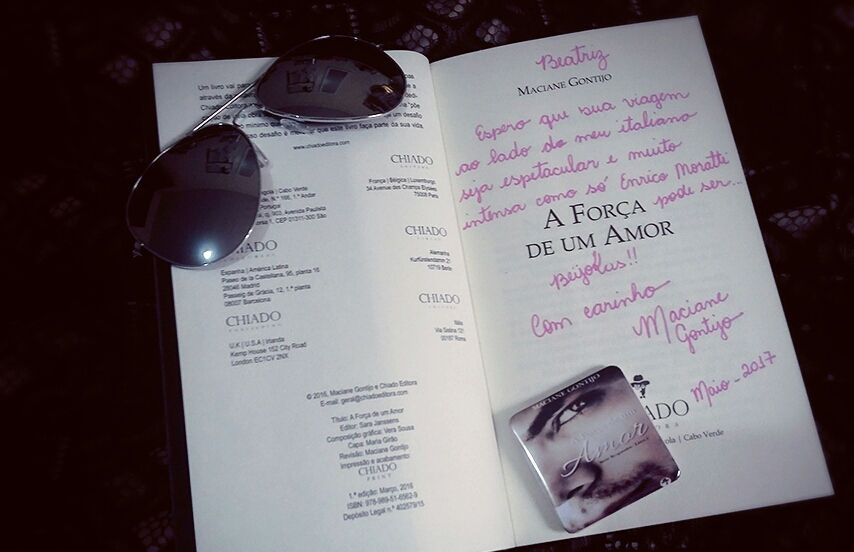 Um livro vai
através da
Chiado Editora
desafio é merecer que este livro faça parte da sua vida.
www.chiadoeditora.com
CHIADO
França | Bélgica | Luxemburgo
34 Avenue des Champs Elysées
75008 Paris
Angola | Cabo Verde
de, N.º 166, 1.º Andar
Portugal
903, Avenida Paulista
1, CEP 01311-300 São
CHIADO
Alemanha
Kurfürstendamm 21
10719 Berlin
CHIADO
Espanha | América Latina
Paseo de la Castellana, 95, planta 16
28046 Madrid
Passeig de Gràcia, 12, 1.ª planta
08007 Barcelona
CHIADO
Itália
Via Sistina 121
00187 Roma
CHIADO
PUBLISHING
U.K | U.S.A | Irlanda
Kemp House 152 City Road
London EC1CV 2NX
© 2016, Maciane Gontijo e Chiado Editora
E-mail: geral@chiadoeditora.com
Título: A Força de um Amor
Editor: Sara Janssens
Composição gráfica: Vera Sousa
Capa: Maria Girão
Revisão: Maciane Gontijo
Impressão e acabamento
CHIADO
PRINT
1.ª edição: Março, 2016
ISBN: 978-989-51-6562-9
Depósito Legal n.º 402579/15
Beatriz
Maciane Gontijo
Espero que sua viagem
ao lado do meu italiano
seja espetacular e muito
intensa como só Enrico Moratti
pode ser...
A Força
de um Amor
Beijokas!!
Com carinho
Maciane
Gontijo
Maio - 2017
CHIADO
EDITORA
Angola | Cabo Verde
MACIANE GONTIJO
Amor